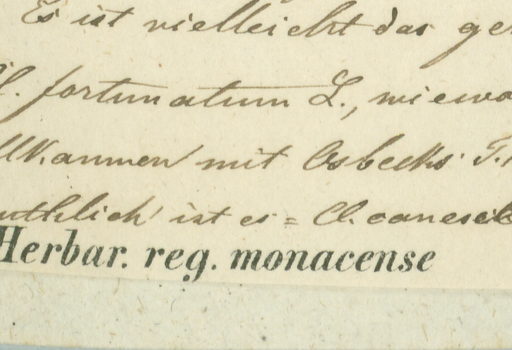 Es ist vielleicht das ger
fortunatum L., wiewo
llkommen mit Osbecks T.
uthlich ist es = Cl. canesce
Herbar. reg. monacense